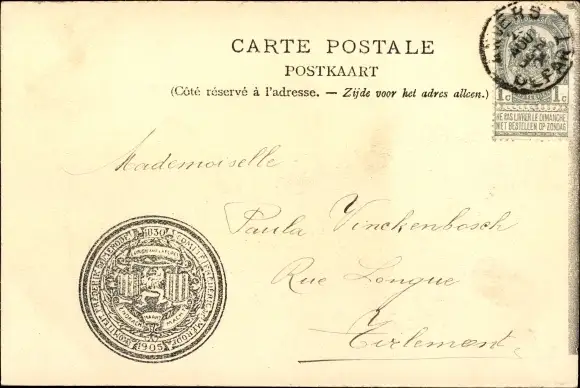 CARTE POSTALE
POSTKAART
(Côté réservé à l'adresse. — Zijde voor het adres alleen.)
ANVERS
DEPART
1c 1c
NE PAS LIVRER LE DIMANCHE
NIET BESTELLEN OP ZONDAG
Mademoiselle
Paula Vinckenbosch
Rue Longue
Tirlemont
1830
1905